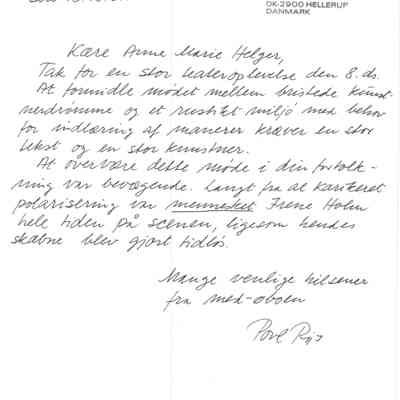 DK-2900 HELLERUP
DANMARK
Kære Anne Marie Helger,
Tak for en stor teateroplevelse den 8. ds.
At formidle mødet mellem bristede kunst-
nerdrømme og et rustikt miljø med behov
for indlæring af manerer kræver en stor
tekst og en stor kunstner.
At overvære dette møde i din fortolk-
ning var bevægende. Langt fra al karikeret
polarisering var mennesket Irene Holm
hele tiden på scenen, ligesom hendes
skæbne blev gjort tidløs.
Mange venlige hilsener
fra med-oboen
Povl